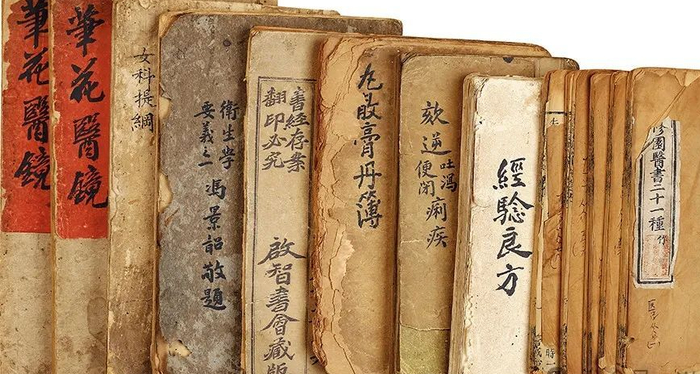 筆花醫鏡
筆花醫鏡
女科提綱
衛生學
要義之一
馮景韶敬題
書經存案
翻印必究
啟智書會藏版
丸散膏丹簿
欬逆
吐瀉
便閉
痢疾
經驗良方
修園醫書二十一種